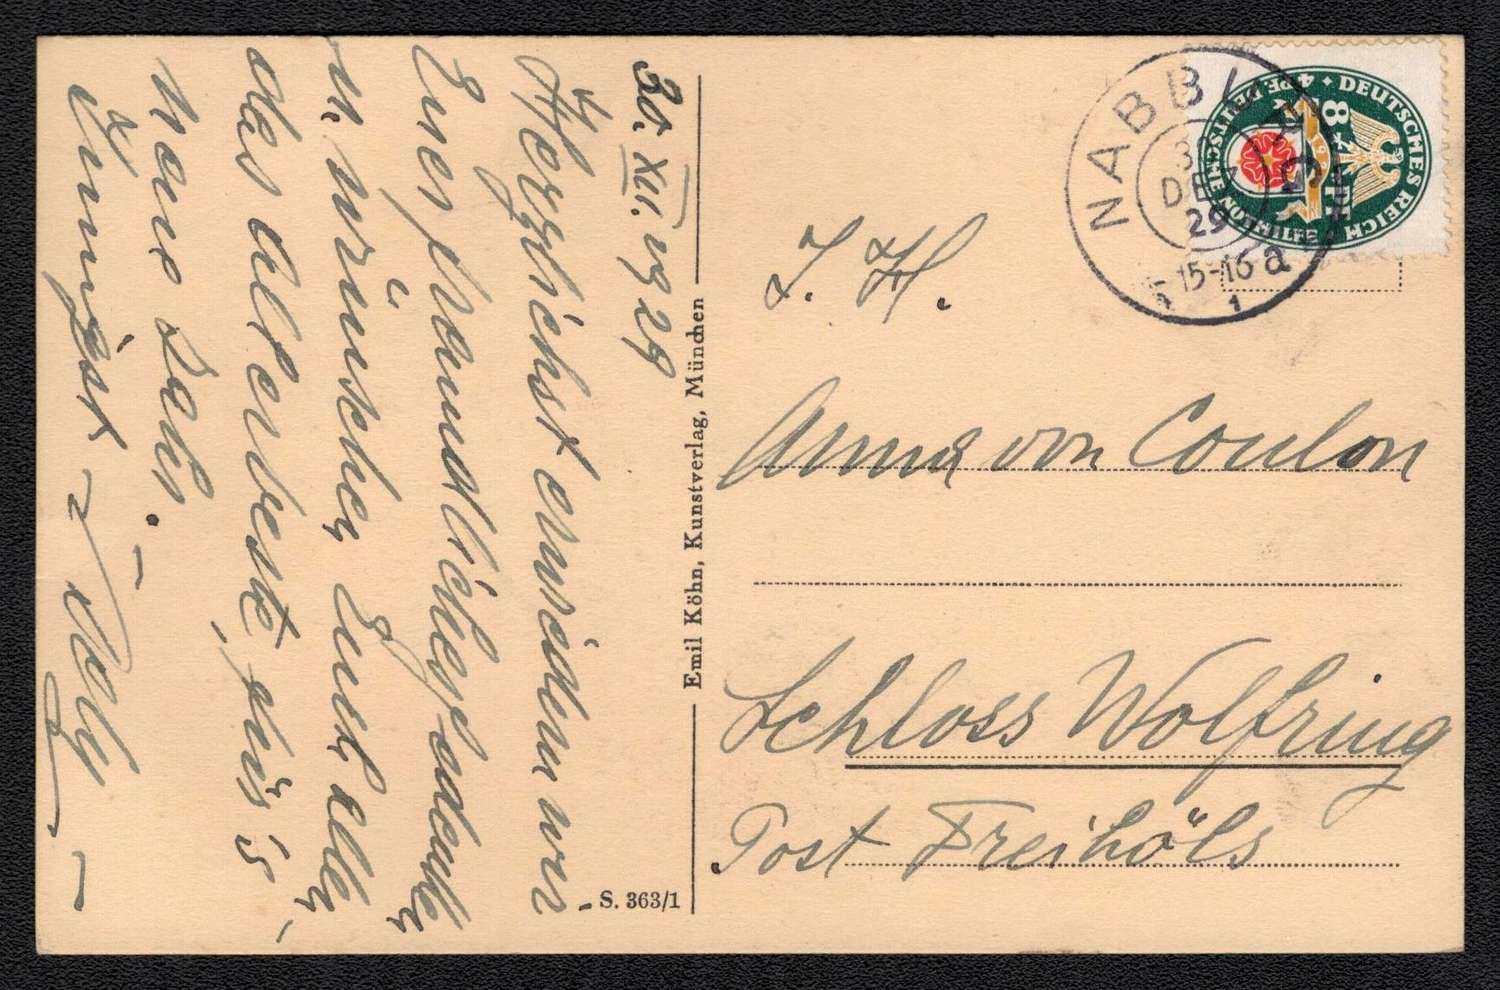 30. XII. 1929
Herzlichst erwidern wir
Euer freundliches Gedenken
u. wünschen Euch allen
das allerbeste fürs
neue Jahr. –
Innigst
Emil Köhn, Kunstverlag, München
S. 363/1
NABBURG
DEZ
29
15-16 a
DEUTSCHES REICH
8+4
I. H.
Anna von Coulon
Schloss Wolfring
Post Freihöls